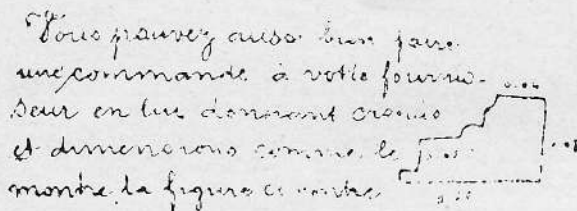 Vous pouvez aussi bien faire
une commande à votre fournis-
seur en lui donnant croquis
et dimensions comme le
montre la figure ci contre